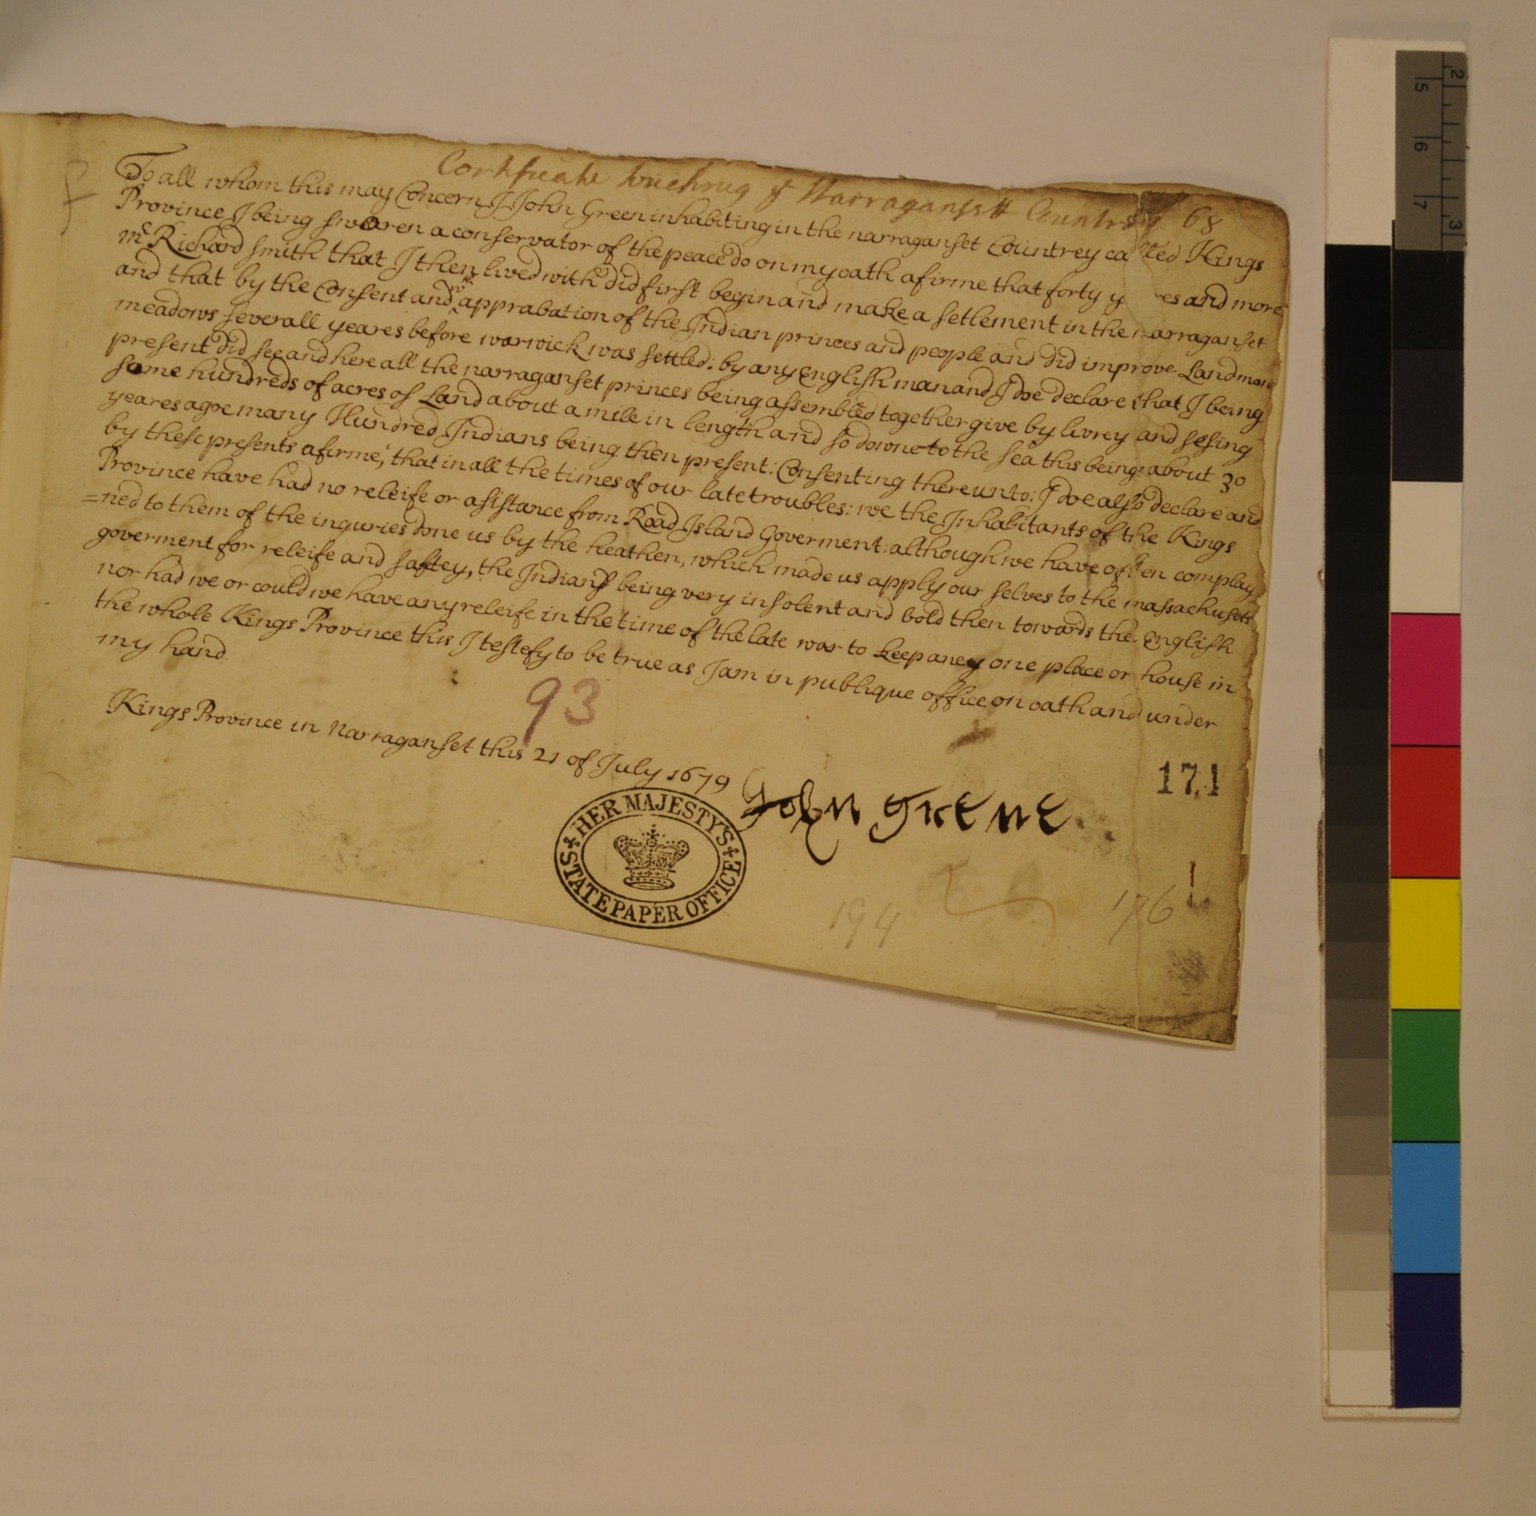 Certificate touching yᵉ Narragansett Country 68
To all whom this may Concern I John Green inhabiting in the narraganset Countrey called Kings
Province I being swaren a conservator of the peace do on my oath afirme that forty yeares and more
mʳ Richard Smith that I then lived with did first begin and make a setlement in the narraganset
and that by the Consent and wᵗʰ apprabation of the Indian princes and people and did improve Land mow
meadows severall yeares before warwick was settled: by any English man and I doe declare that I being
present did see and here all the narraganset princes being assembled together give by livrey and sesing
some hundreds of acres of Land about a mile in length and so downe to the sea this being about 30
yeares agoe many Hundred Indians being then present: Consenting thereunto: I doe also declare and
by these presents afirme, that in all the times of our late troubles: we the Inhabitants of the Kings
Province have had no releife or asistance from Road Island Goverment: although we have often complay
=ned to them of the inguries done us by the heathen, which made us apply our selves to the massachusets
goverment for releife and saftey, the Indians being very insolent and bold then towards the English
nor had we or could we have any releife in the time of the late war to keep aney one place or house in
the whole Kings Province this I testefy to be true as I am in publique office on oath and under
my hand
93
Kings Province in Narraganset this 21 of July 1679
John Greene
171
HER MAJESTY'S
STATE PAPER OFFICE
194
176
5 6 7
2 3